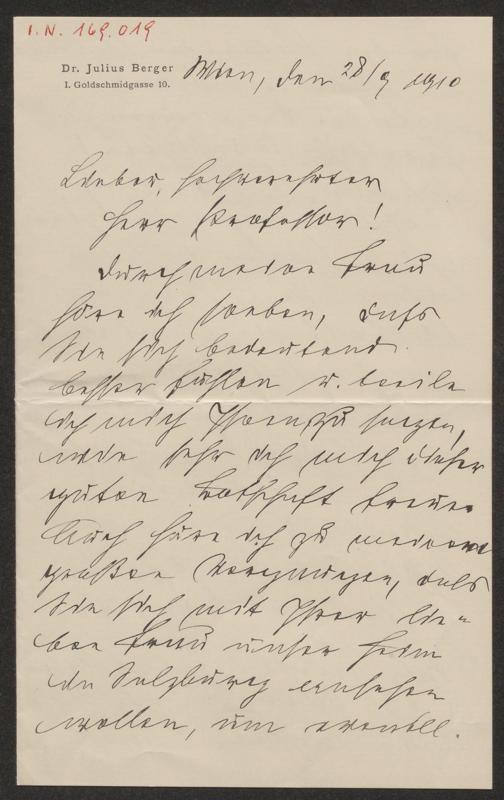 I.N. 169.019
Dr. Julius Berger
I. Goldschmidgasse 10.
Wien, den 28/9 1910
Lieber, hochverehrter
Herr Professor!
Durch meine Frau
höre ich soeben, dass
Sie sich bedeutend
besser fühlen u. beeile
ich mich Ihnen zu sagen,
wie sehr ich mich dieser
guten Botschaft freue.
Auch höre ich zu meinem
großen Vergnügen, dass
Sie sich mit Ihrer lie-
ben Frau unser Heim
in Salzburg ansehen
wollen, um eventell.